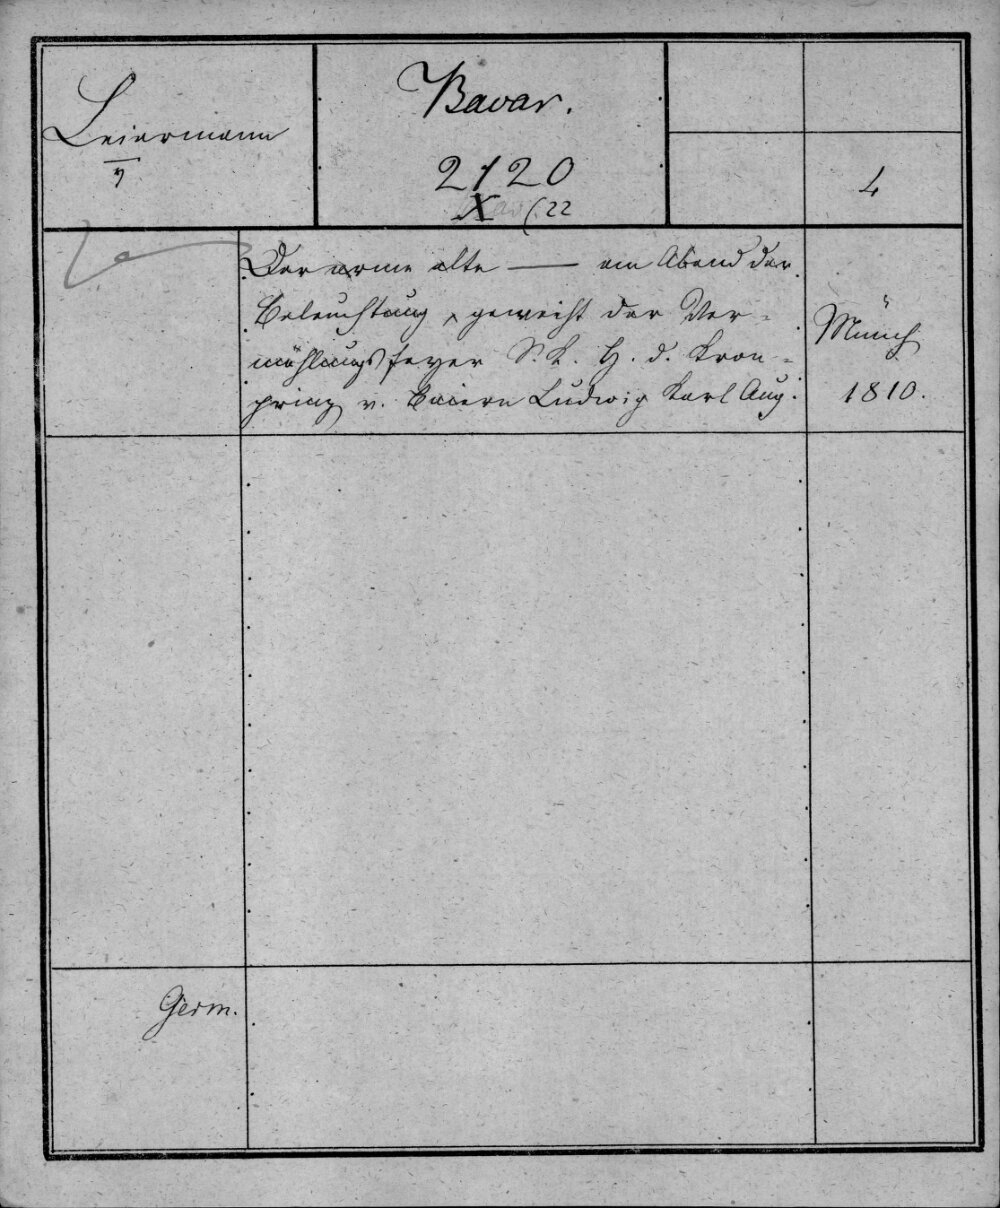 Leiermann
Bavar.
2120
X (22
4
Der arme alte — am Abend der
Beleuchtung, geweiht der Ver-
mählungsfeyer S. K. H. d. Kron-
prinz v. Baiern Ludwig Karl Aug.
Münch
1810.
Germ.